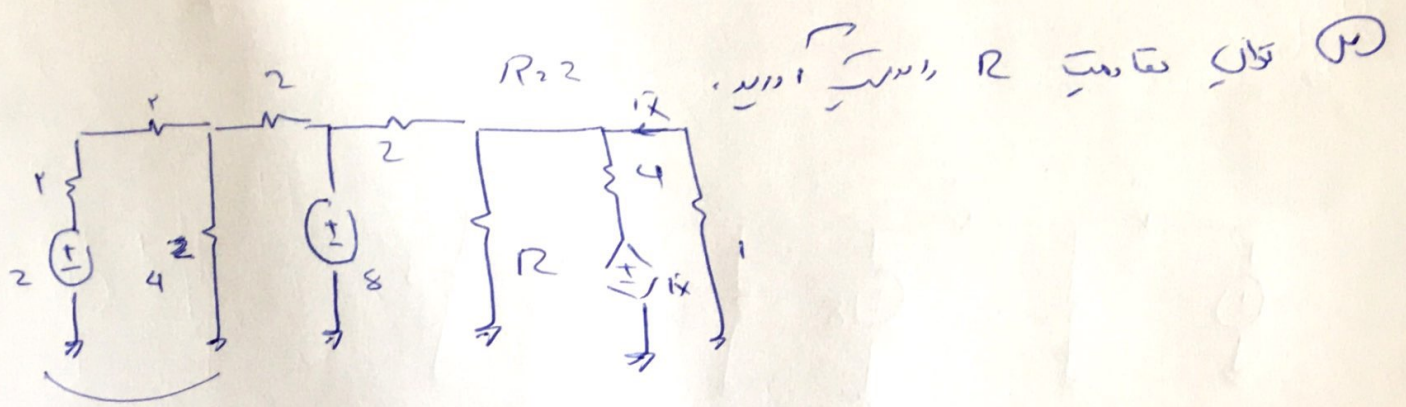 س توان مقاومت R را بدست آورید.
R=2
۲
2
2
ix
۲
2
4
8
R
4
ix
1